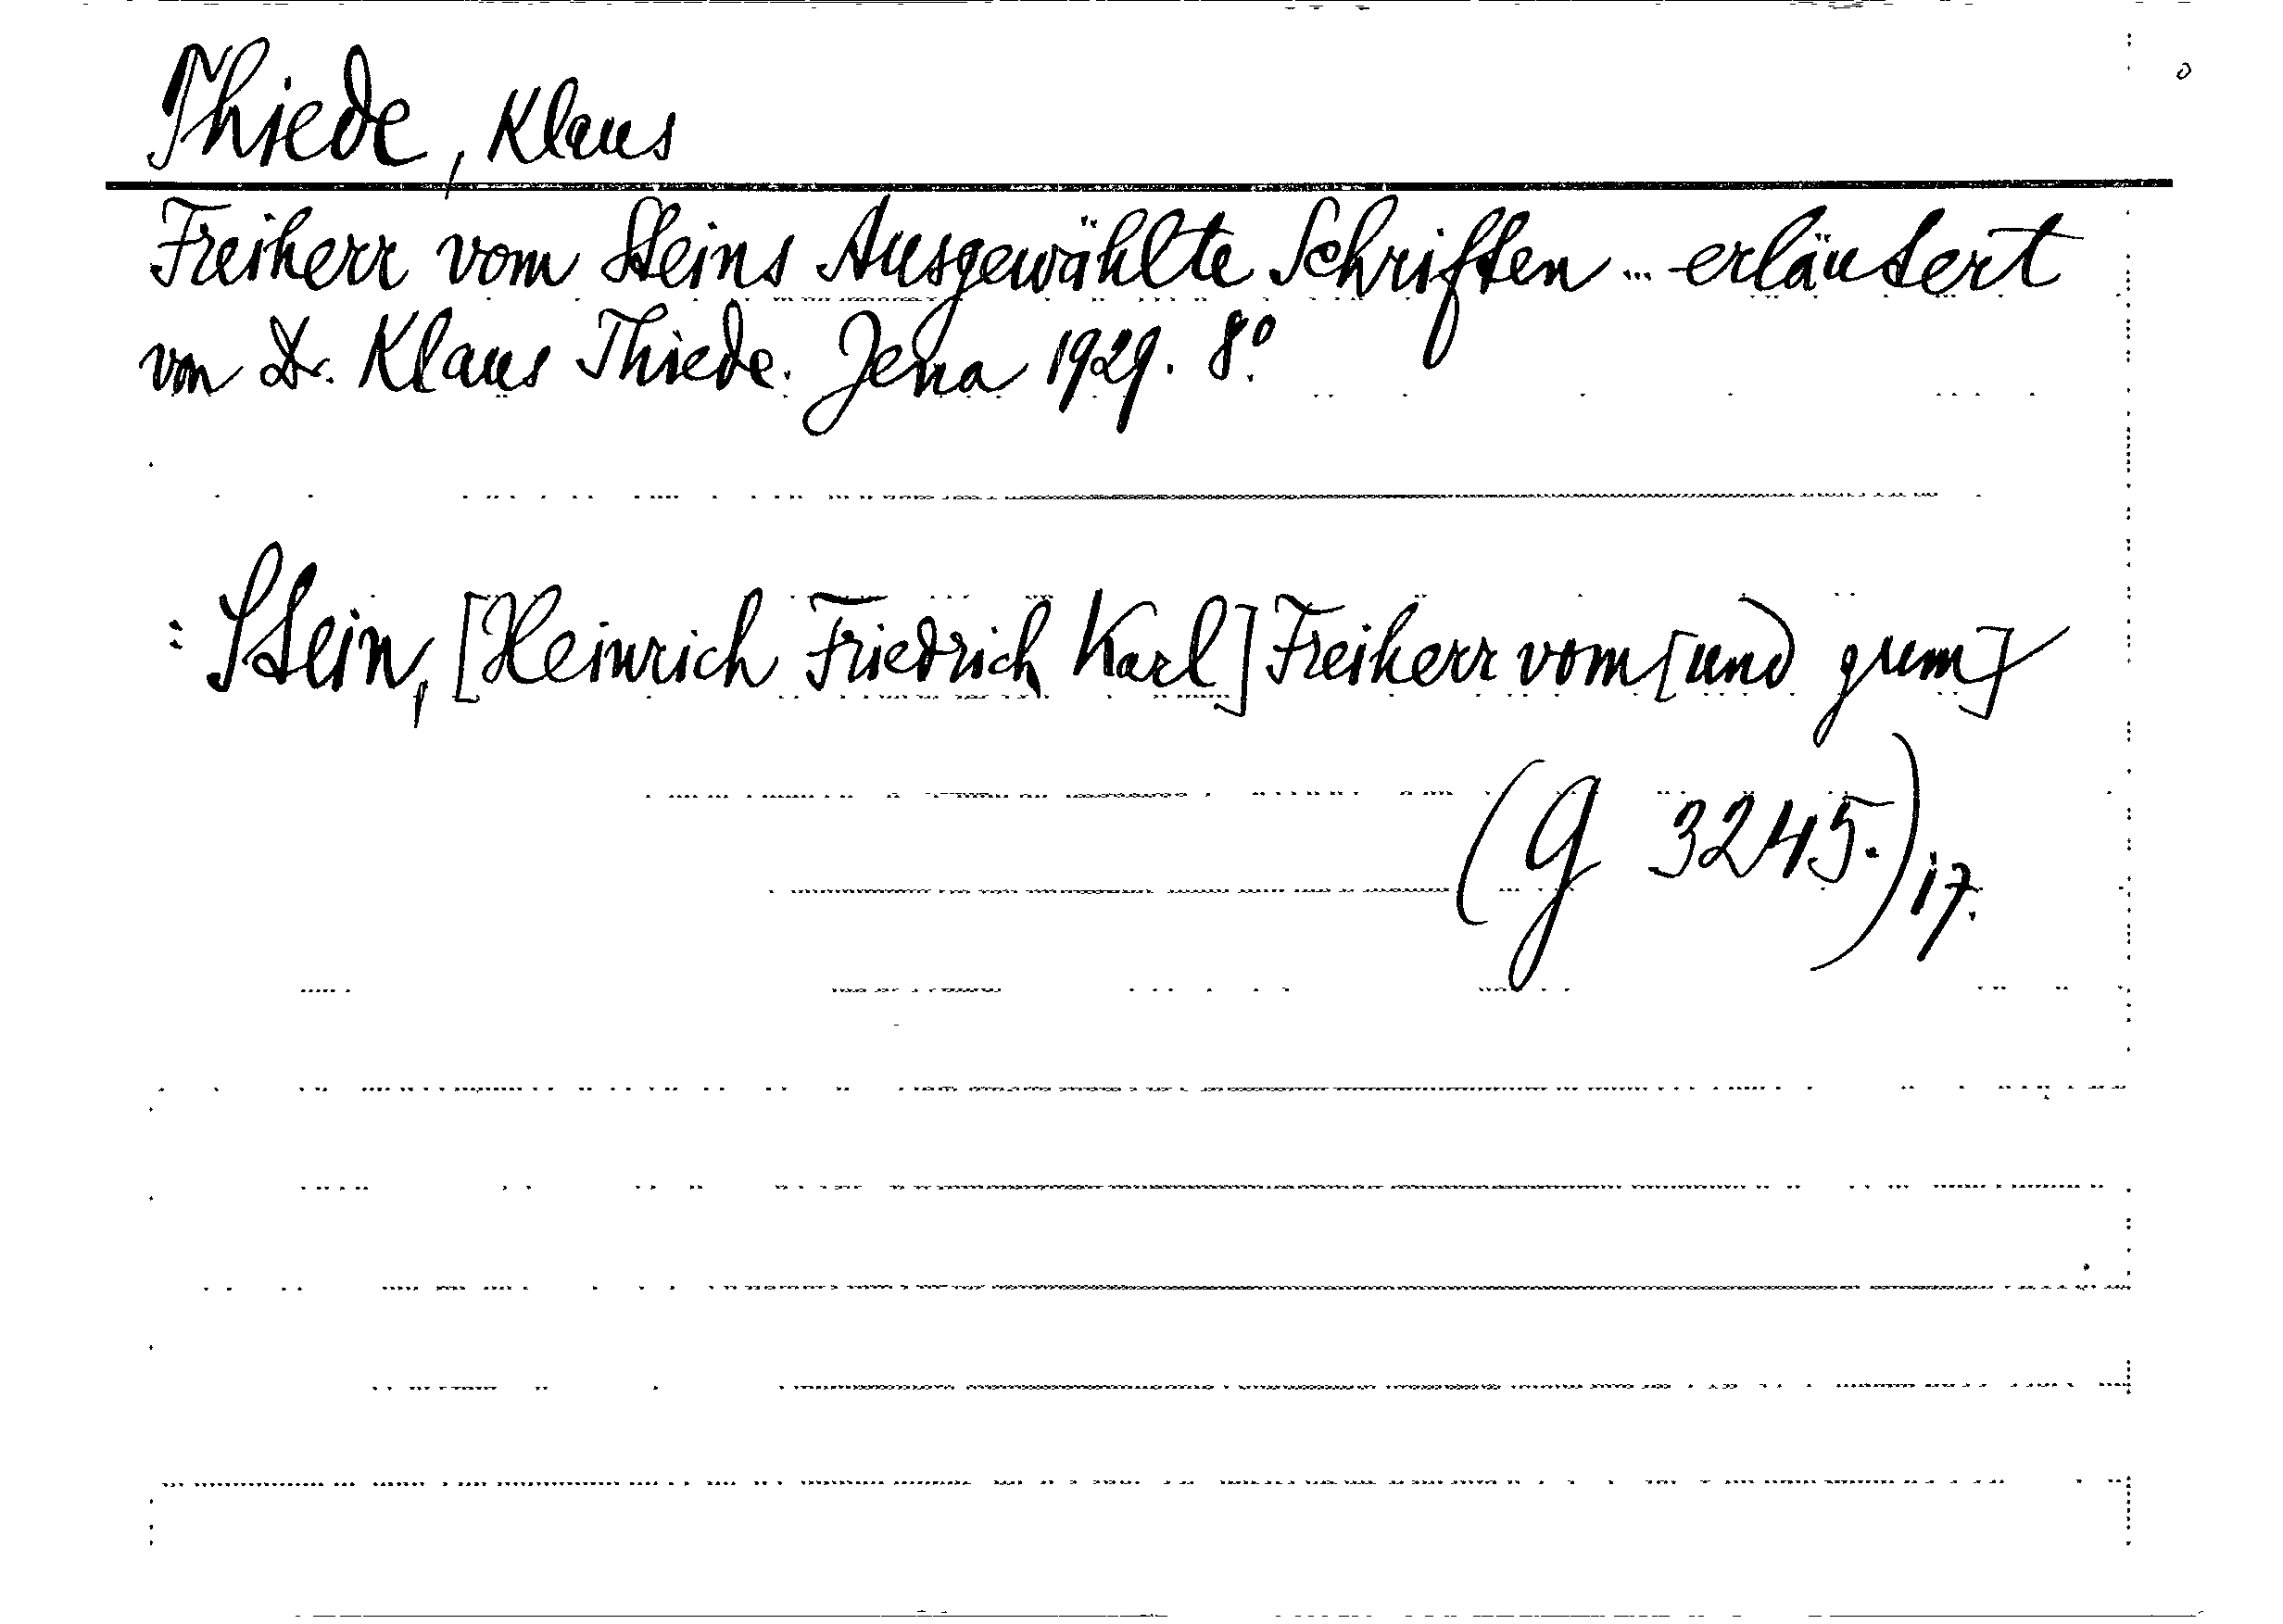 Thiede, Klaus
Freiherr vom Steins Ausgewählte Schriften ... erläutert
von Dr. Klaus Thiede. Jena 1929. 8°.
: Stein, [Heinrich Friedrich Karl] Freiherr vom [und zum]
(G 3245.) 17.